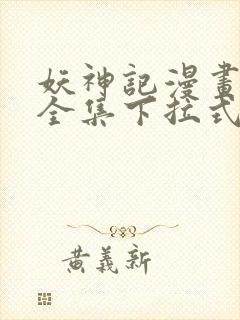 妖神記漫畫
全集下拉式
黃義新